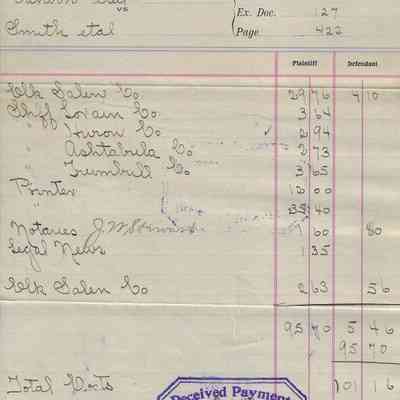 vs
Ex. Doc. 127
Smith etal
Page 422
Plaintiff Defendant
Clk Salem Co 29 76 4 10
Shff Lorain Co 3 64
" Huron Co 2 94
" Ashtabula Co 2 73
" Trumbull Co 3 65
Printer 12 00
" 40
Notaries J. W. 1 60 80
Legal News 1 35
Clk Salem Co 2 63 56
95 70 5 46
95 70
Total Costs 101 16
Received Payment